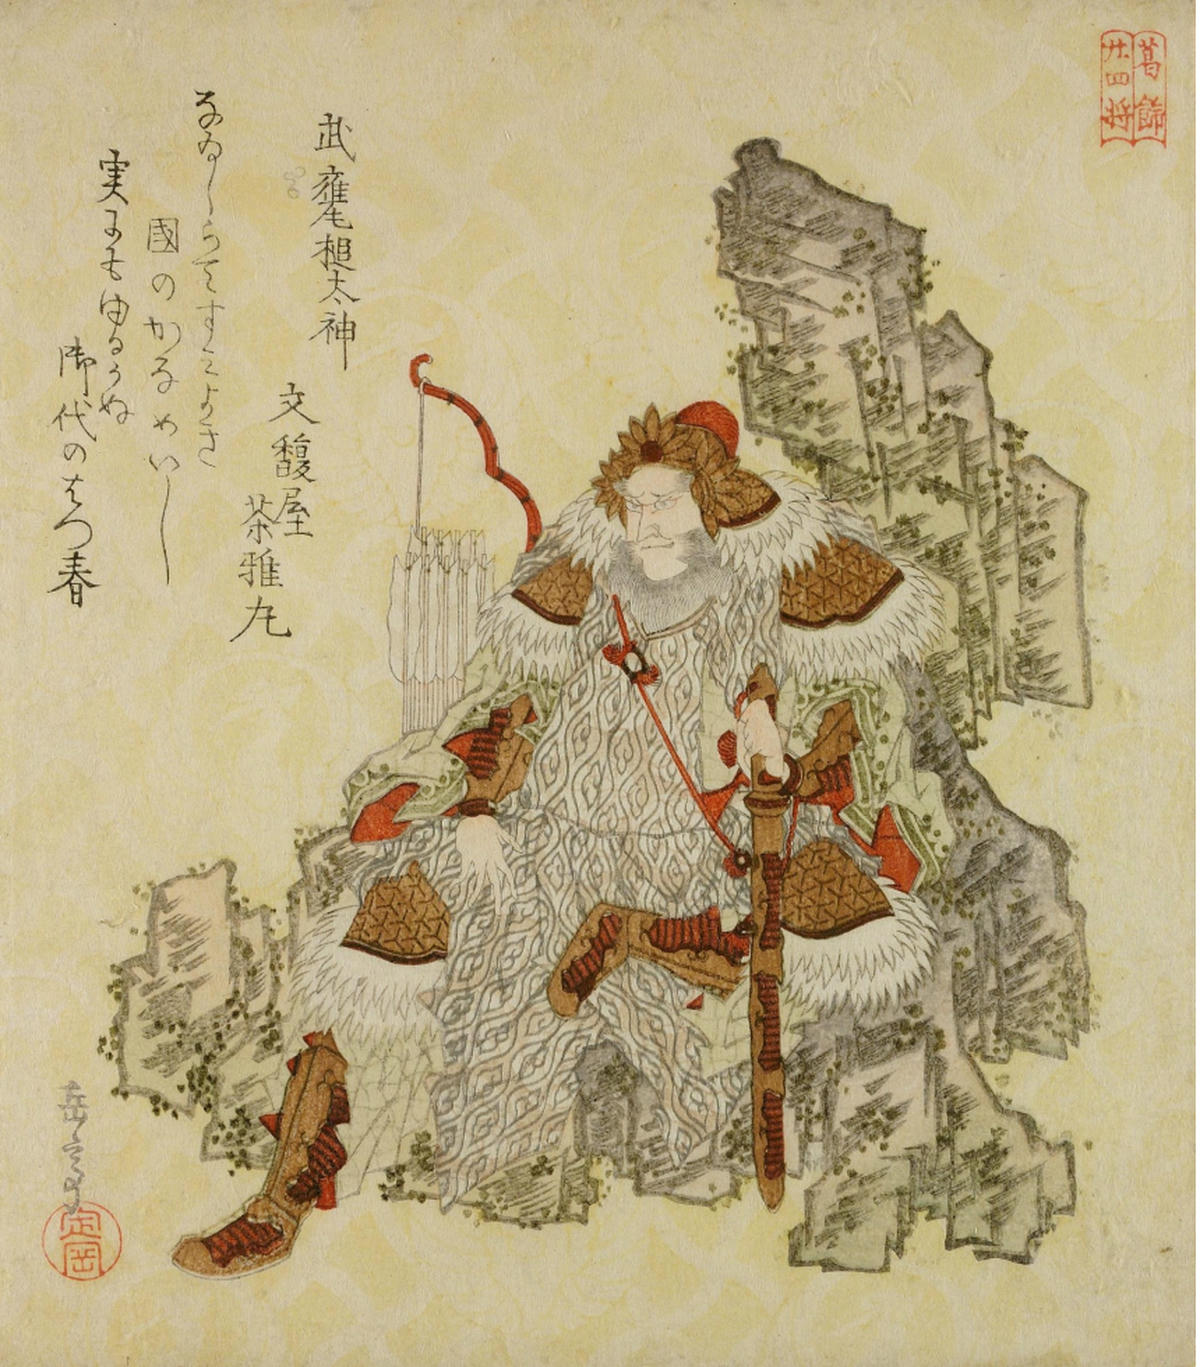 葛飾
廿四将
武甕槌太神
文馥屋
茶雅丸
なゐしらてすミよき
國のかなめいし
実にもゆるかぬ
御代のはつ春
岳亭
定岡